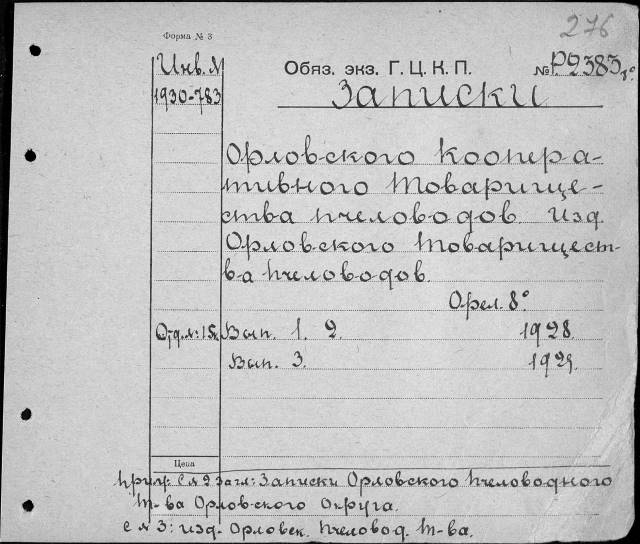 276
Форма № 3
Инв. № Обяз. экз. Г. Ц. К. П. № Р2383 8°
1930-783 Записки
Орловского Коопера-
тивного товарище-
ства пчеловодов. Изд.
Орловского товарищест-
ва пчеловодов.
Орел. 8°
Вып. 1. 2. 1928.
Вып. 3. 1929.
Цена
Прим: С № 2 загл: Записки Орловского пчеловодного
т-ва Орловского Округа.
С № 3: изд. Орловск. пчеловод. т-ва.